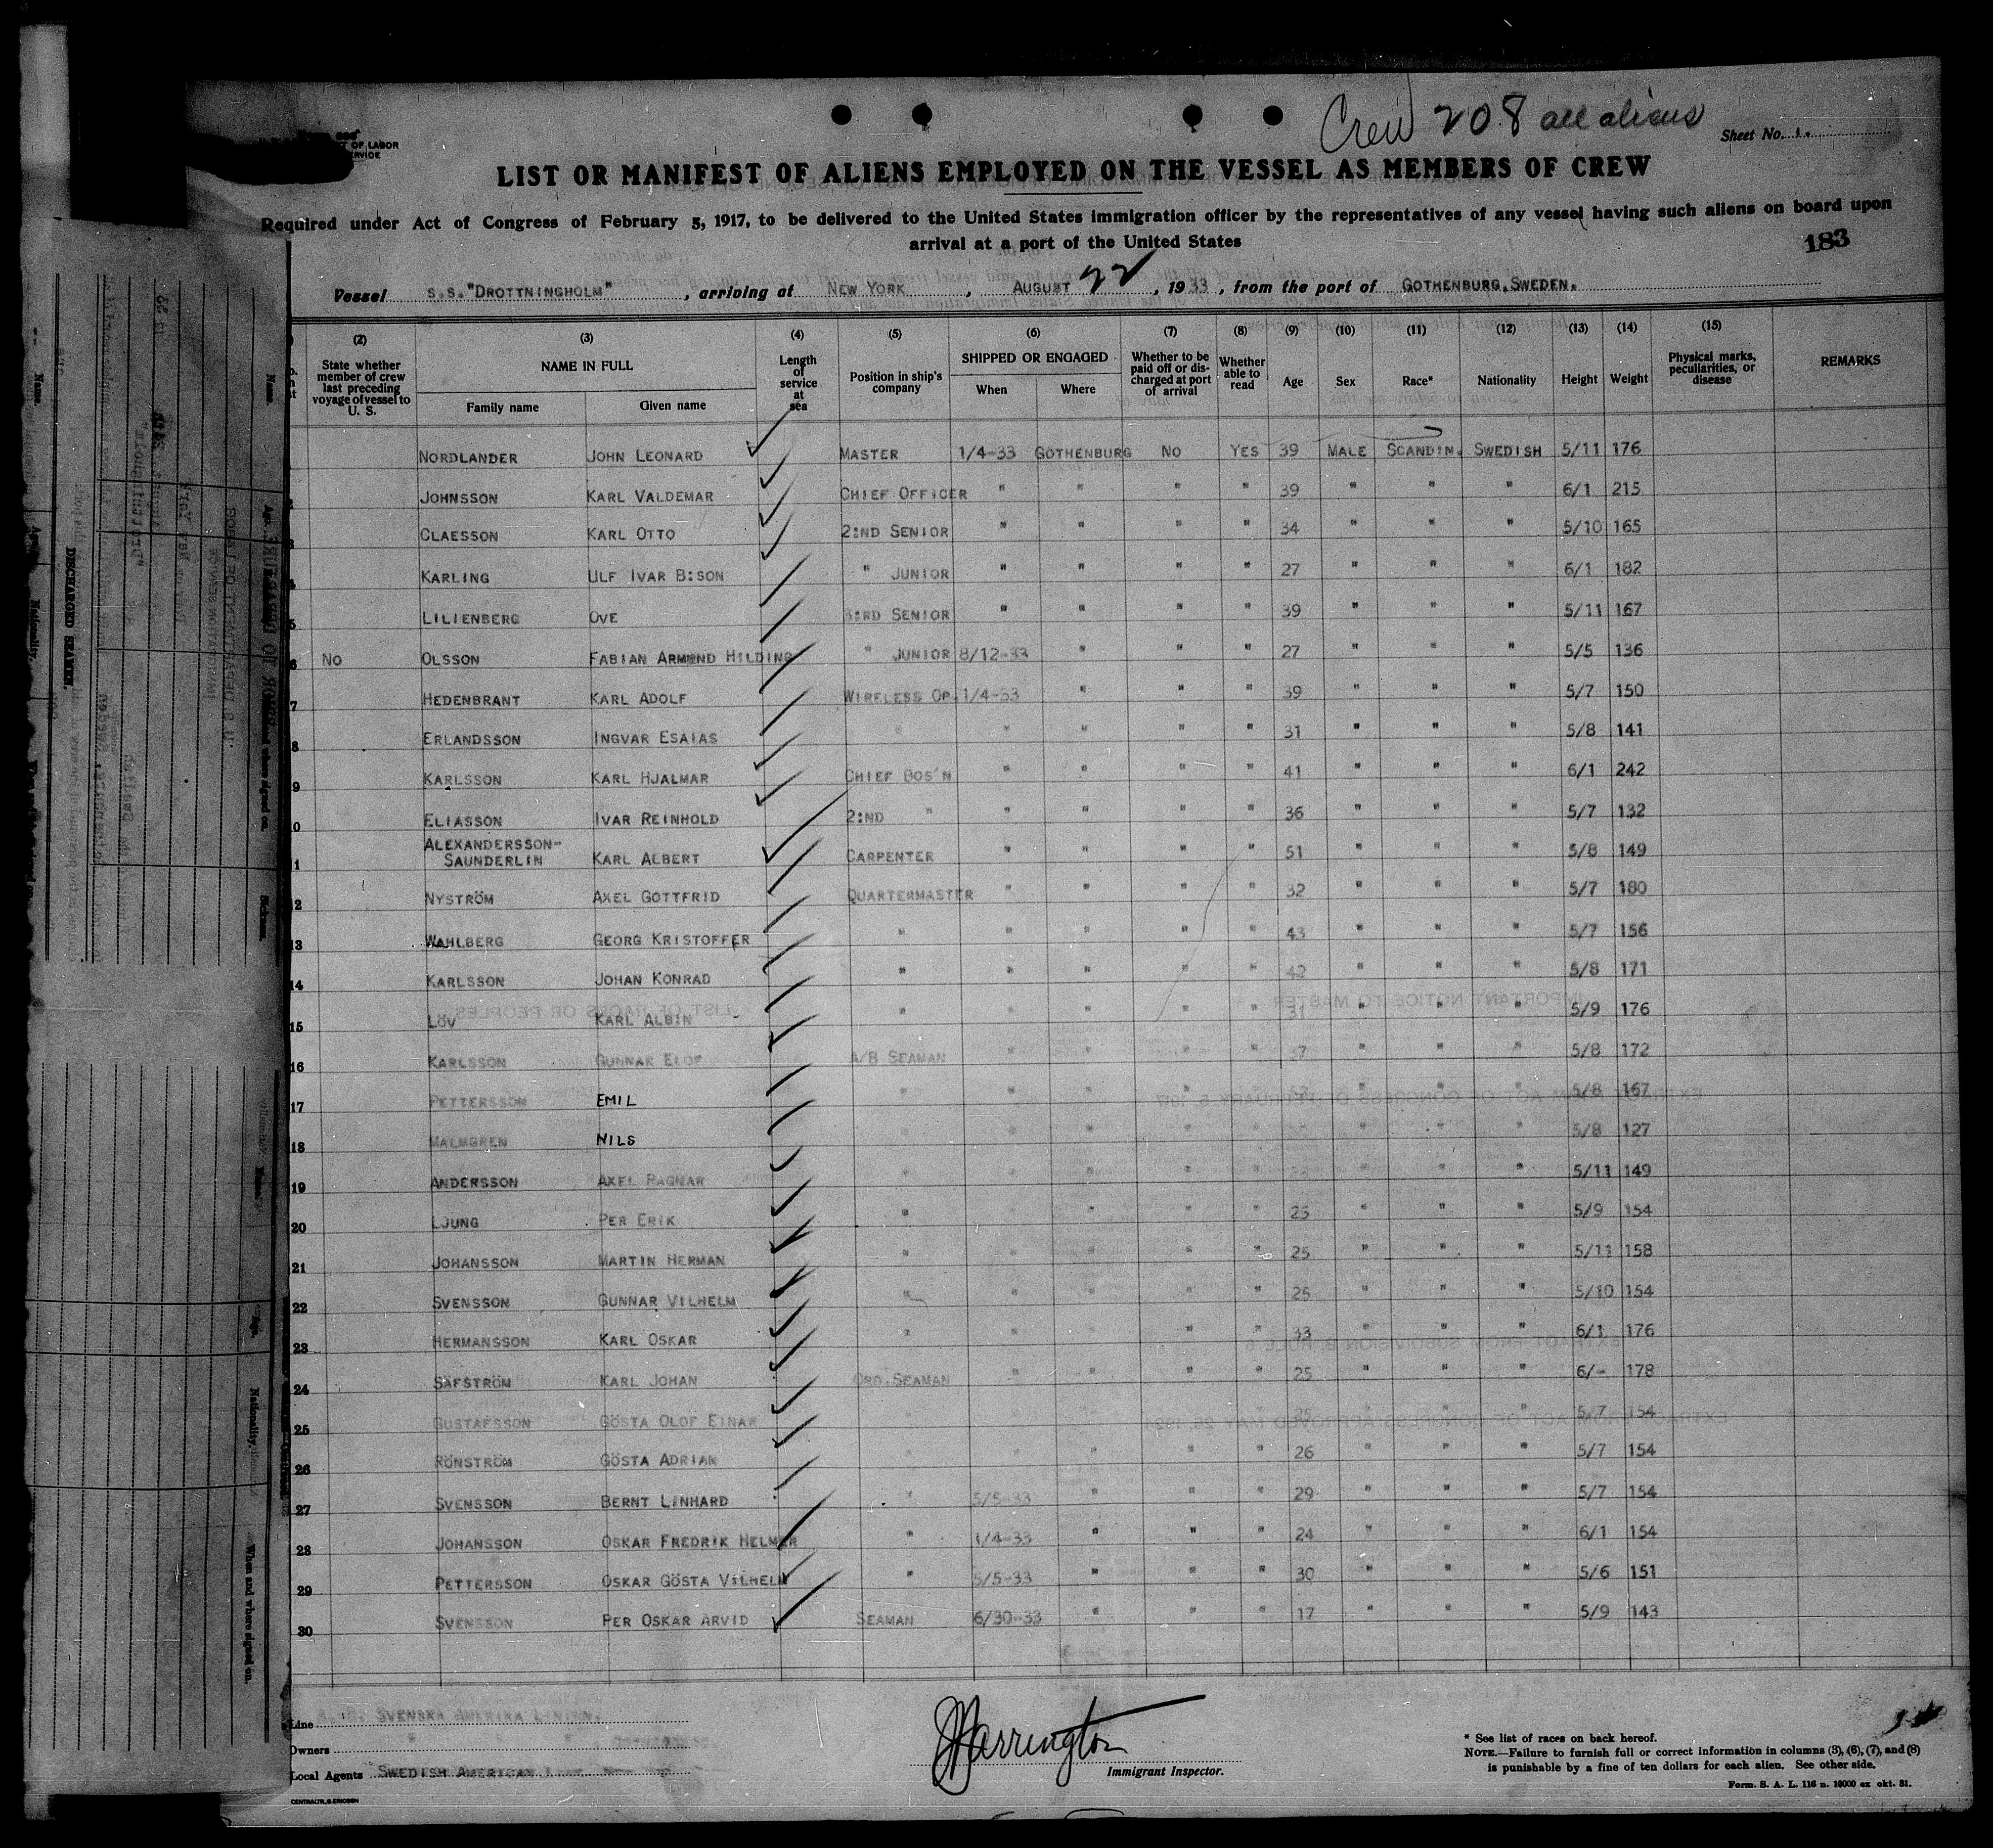 Crew 208 all aliens
Sheet No. 1.
OF LABOR
LIST OR MANIFEST OF ALIENS EMPLOYED ON THE VESSEL AS MEMBERS OF CREW
Required under Act of Congress of February 5, 1917, to be delivered to the United States immigration officer by the representatives of any vessel having such aliens on board upon
arrival at a port of the United States
183
Vessel S.S."DROTTNINGHOLM", arriving at NEW YORK, AUGUST 22, 1933, from the port of GOTHENBURG, SWEDEN.
(2) (3) (4) (5) (6) (7) (8) (9) (10) (11) (12) (13) (14) (15)
State whether member of crew last preceding voyage of vessel to U. S. NAME IN FULL Family name Given name Length of service at sea Position in ship's company SHIPPED OR ENGAGED When Where Whether to be paid off or discharged at port of arrival Whether able to read Age Sex Race* Nationality Height Weight Physical marks, peculiarities, or disease REMARKS
NORDLANDER JOHN LEONARD MASTER 1/4-33 GOTHENBURG NO YES 39 MALE SCANDIN. SWEDISH 5/11 176
2 JOHNSSON KARL VALDEMAR CHIEF OFFICER " " " " 39 " " " 6/1 215
3 CLAESSON KARL OTTO 2:ND SENIOR " " " " 34 " " " 5/10 165
4 KARLING ULF IVAR B:SON " JUNIOR " " " " 27 " " " 6/1 182
5 LILIENBERG OVE 3:RD SENIOR " " " " 39 " " " 5/11 167
6 NO OLSSON FABIAN ARMOND HILDING " JUNIOR 8/12-33 " " " 27 " " " 5/5 136
7 HEDENBRANT KARL ADOLF WIRELESS OP. 1/4-33 " " " 39 " " " 5/7 150
8 ERLANDSSON INGVAR ESAIAS " " " " " 31 " " " 5/8 141
9 KARLSSON KARL HJALMAR CHIEF BOS'N " " " " 41 " " " 6/1 242
10 ELIASSON IVAR REINHOLD 2:ND " " " " " 36 " " " 5/7 132
11 ALEXANDERSSON-SAUNDERLIN KARL ALBERT CARPENTER " " " " 51 " " " 5/8 149
12 NYSTRÖM AXEL GOTTFRID QUARTERMASTER " " " " 32 " " " 5/7 180
13 WAHLBERG GEORG KRISTOFFER " " " " " 43 " " " 5/7 156
14 KARLSSON JOHAN KONRAD " " " " " 42 " " " 5/8 171
15 LÖV KARL ALBIN " " " " " 31 " " " 5/9 176
16 KARLSSON GUNNAR ELOF A/B SEAMAN " " " " 37 " " " 5/8 172
17 PETTERSSON EMIL " " " " " " " 5/8 167
18 MALMGREN NILS " " " " " " " 5/8 127
19 ANDERSSON AXEL RAGNAR " " " " " " " 5/11 149
20 LJUNG PER ERIK " " " " " 25 " " " 5/9 154
21 JOHANSSON MARTIN HERMAN " " " " " 25 " " " 5/11 158
22 SVENSSON GUNNAR VILHELM " " " " " 25 " " " 5/10 154
23 HERMANSSON KARL OSKAR " " " " " 33 " " " 6/1 176
24 SÄFSTRÖM KARL JOHAN ORD.SEAMAN " " " " 25 " " " 6/- 178
25 GUSTAFSSON GÖSTA OLOF EINAR " " " " " " " 5/7 154
26 RÖNSTRÖM GÖSTA ADRIAN " " " " " 26 " " " 5/7 154
27 SVENSSON BERNT LINHARD " 5/5-33 " " " 29 " " " 5/7 154
28 JOHANSSON OSKAR FREDRIK HELMER " 1/4-33 " " " 24 " " " 6/1 154
29 PETTERSSON OSKAR GÖSTA VILHELM " 5/5-33 " " " 30 " " " 5/6 151
30 SVENSSON PER OSKAR ARVID SEAMAN 6/30-33 " " " 17 " " " 5/9 143
Line SVENSKA AMERIKA LINIEN.
Owners
Local Agents SWEDISH AMERICAN
Immigrant Inspector.
* See list of races on back hereof.
NOTE.—Failure to furnish full or correct information in columns (3), (6), (7), and (8)
is punishable by a fine of ten dollars for each alien. See other side.
Form. S. A. L. 116 n. 10000 ex okt. 31.
CENTRALTR. G. ERICSON